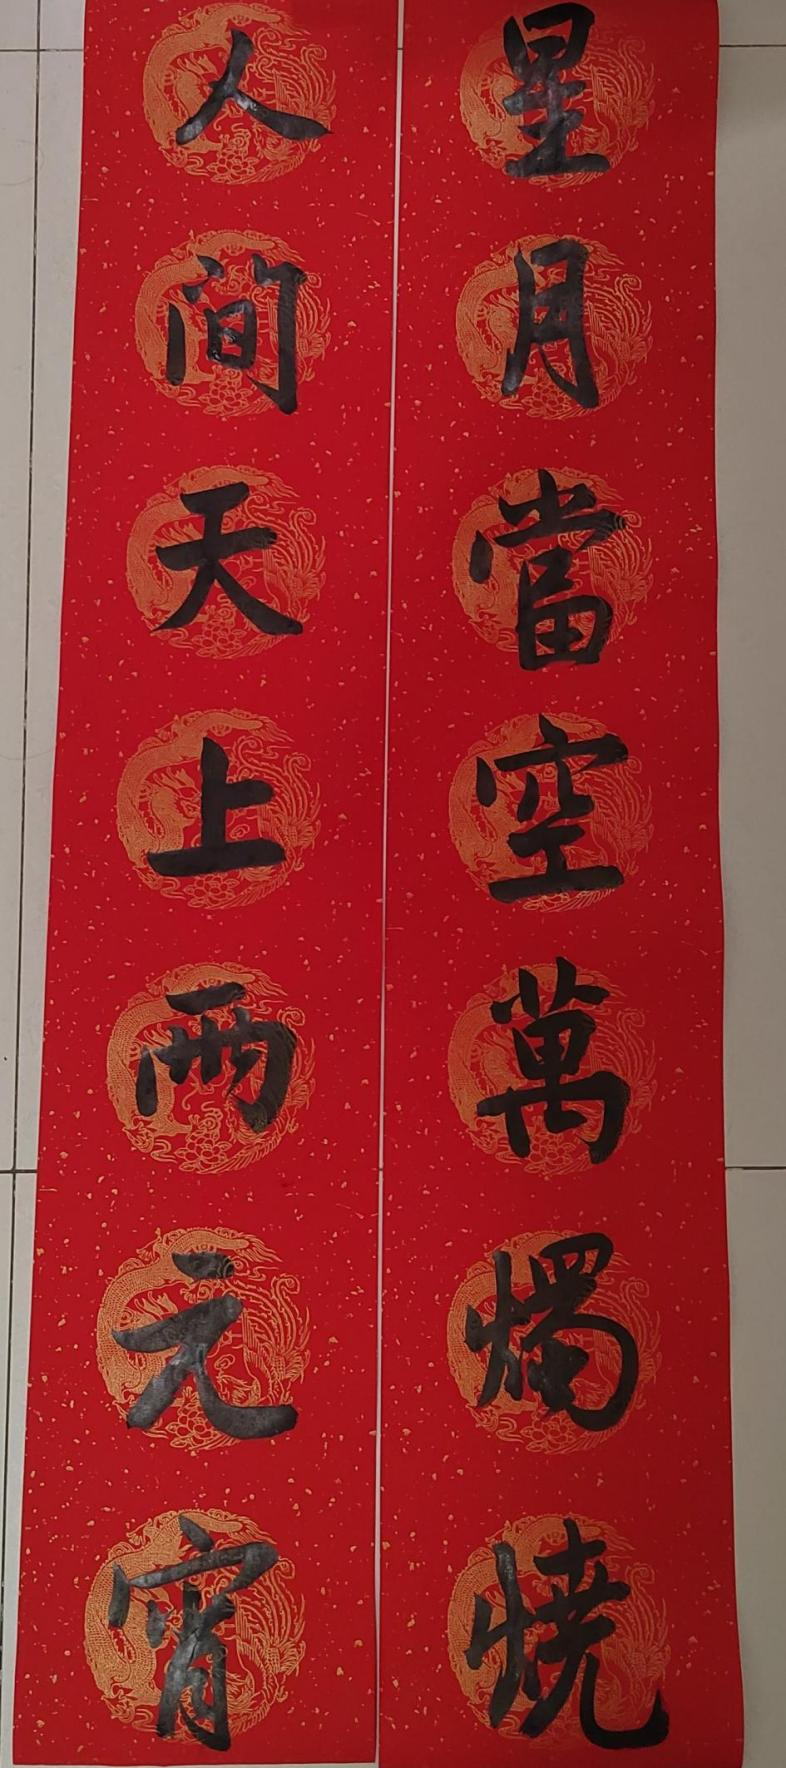 星月當空萬燭燒
人間天上兩元宵